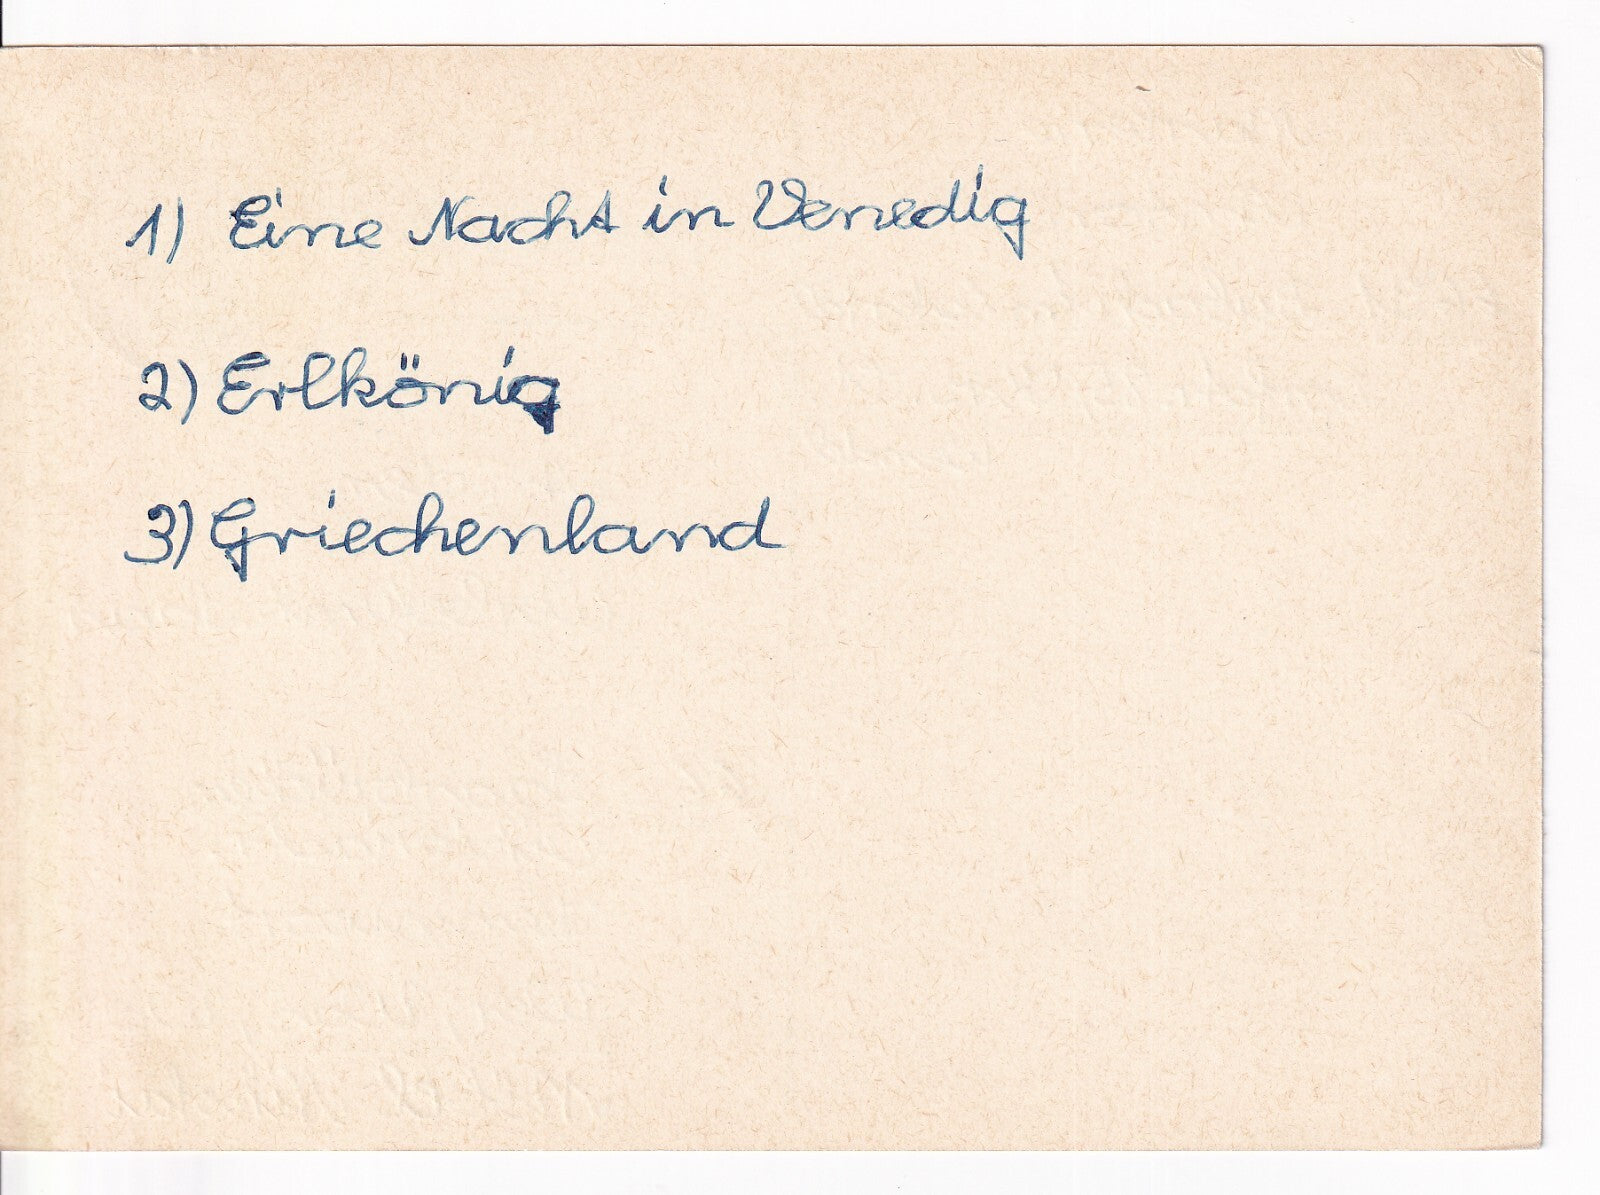 1) Eine Nacht in Venedig
2) Erlkönig
3) Griechenland